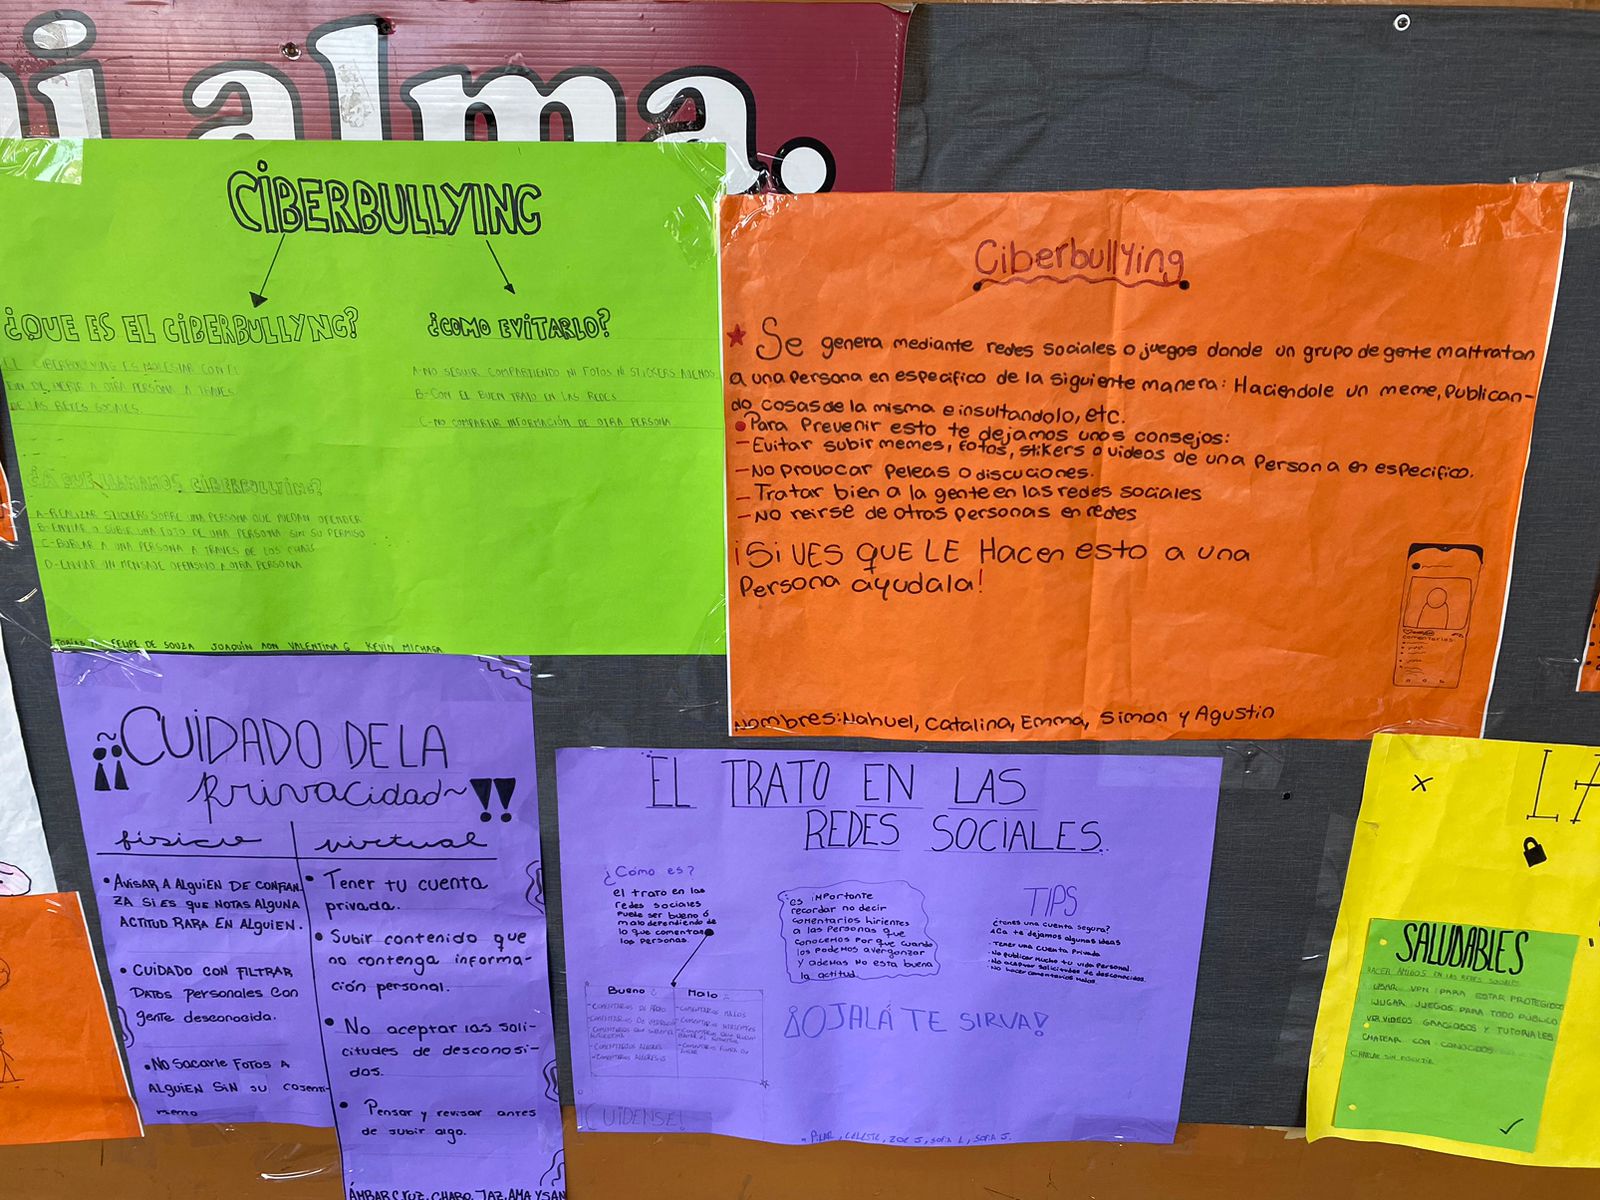 mi alma.
CIBERBULLYING
¿QUE ES EL CIBERBULLYNG?
EL CIBERBULLYING ES MOLESTAR CON EL
FIN DE HERIR A OTRA PERSONA A TRAVES
DE LAS REDES SOCIALES.
¿A QUE LLAMAMOS CIBERBULLYING?
A-REALIZAR STICKERS SOBRE UNA PERSONA QUE PUEDAN OFENDER
B-ENVIAR O SUBIR UNA FOTO DE UNA PERSONA SIN SU PERMISO
C-BURLAR A UNA PERSONA A TRAVES DE LOS CHATS
D-ENVIAR UN MENSAJE OFENSIVO A OTRA PERSONA
¿COMO EVITARLO?
A-NO SEGUIR COMPARTIENDO NI FOTOS NI STICKERS AJENOS
B-CON EL BUEN TRATO EN LAS REDES
C-NO COMPARTIR INFORMACIÓN DE OTRA PERSONA
FELIPE DE SOUZA JOAQUÍN VALENTINA G KEVIN MICHAGA
Ciberbullying
Se genera mediante redes sociales o juegos donde un grupo de gente maltratan
a una Persona en especifico de la siguiente manera: Haciendole un meme, Publican-
do cosas de la misma e insultandolo, etc.
Para Prevenir esto te dejamos unos consejos:
- Evitar subir memes, fotos, stikers o videos de una Persona en especifico.
- No provocar Peleas o discuciones.
- Tratar bien a la gente en las redes sociales
- No reirse de otras personas en redes
¡Si VES QUE LE Hacen esto a una
Persona ayudala!
comentarios:
Nombres: Nahuel, Catalina, Emma, Simon y Agustin
¡¡CUIDADO DE LA
Privacidad~!!
físico
• AVISAR A ALGUIEN DE CONFIAN-
ZA SI ES QUE NOTAS ALGUNA
ACTITUD RARA EN ALGUIEN.
• CUIDADO CON FILTRAR
DATOS Personales Con
gente desconocida.
• No Sacarle Fotos A
ALGUIEN SIN SU COSENTI-
miento
virtual
• Tener tu cuenta
privada.
• Subir contenido que
no contenga informa-
ción personal.
• No aceptar las soli-
citudes de desconosi-
dos.
• Pensar y revisar antes
de subir algo.
ÁMBAR, CRUZ, CHARO, JAZ, AMA Y SAN
EL TRATO EN LAS
REDES SOCIALES.
¿Cómo es?
el trato en las
redes sociales
puede ser bueno ó
malo dependiendo de
lo que comentan
las personas.
Bueno Malo
Es importante
recordar no decir
comentarios hirientes
a las personas que
conocemos por que cuando
los podemos avergonzar
y ademas no esta buena
la actitud.
TIPS
¿tenes una cuenta segura?
Aca te dejamos algunas ideas
- Tener una cuenta Privada
- No publicar mucho tu vida Personal.
- No aceptar solicitudes de desconocidos.
- No hacer comentarios malos.
¡OJALÁ TE SIRVA!
CUIDENSE!
PILAR, CELESTE, ZOE J, SOFIA L, SOFIA J.
LA
SALUDABLES
HACER AMIGOS EN LAS REDES SOCIALES
USAR VPN PARA ESTAR PROTEGIDO
JUGAR JUEGOS PARA TODO PÚBLICO
VER VIDEOS GRACIOSOS Y TUTORIALES
CHATEAR CON CONOCIDOS